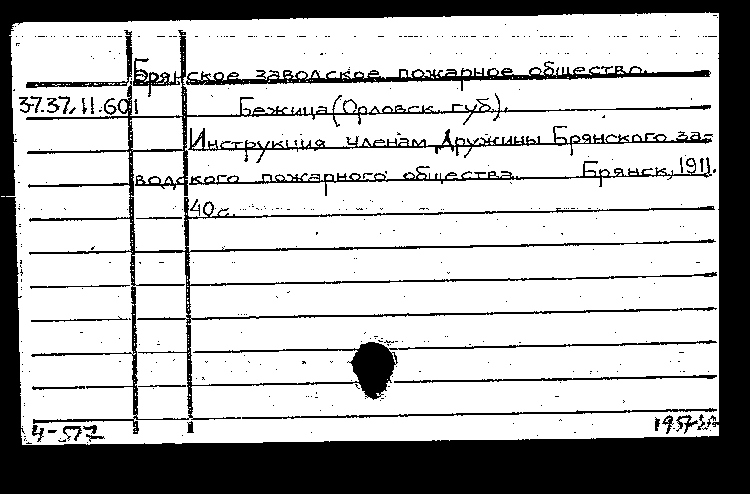 Брянское заводское пожарное общество.
37.37.11.601 Бежица (Орловск. губ.).
Инструкция членам Дружины Брянского за-
водского пожарного общества. Брянск, 1911.
40 с.
4-517